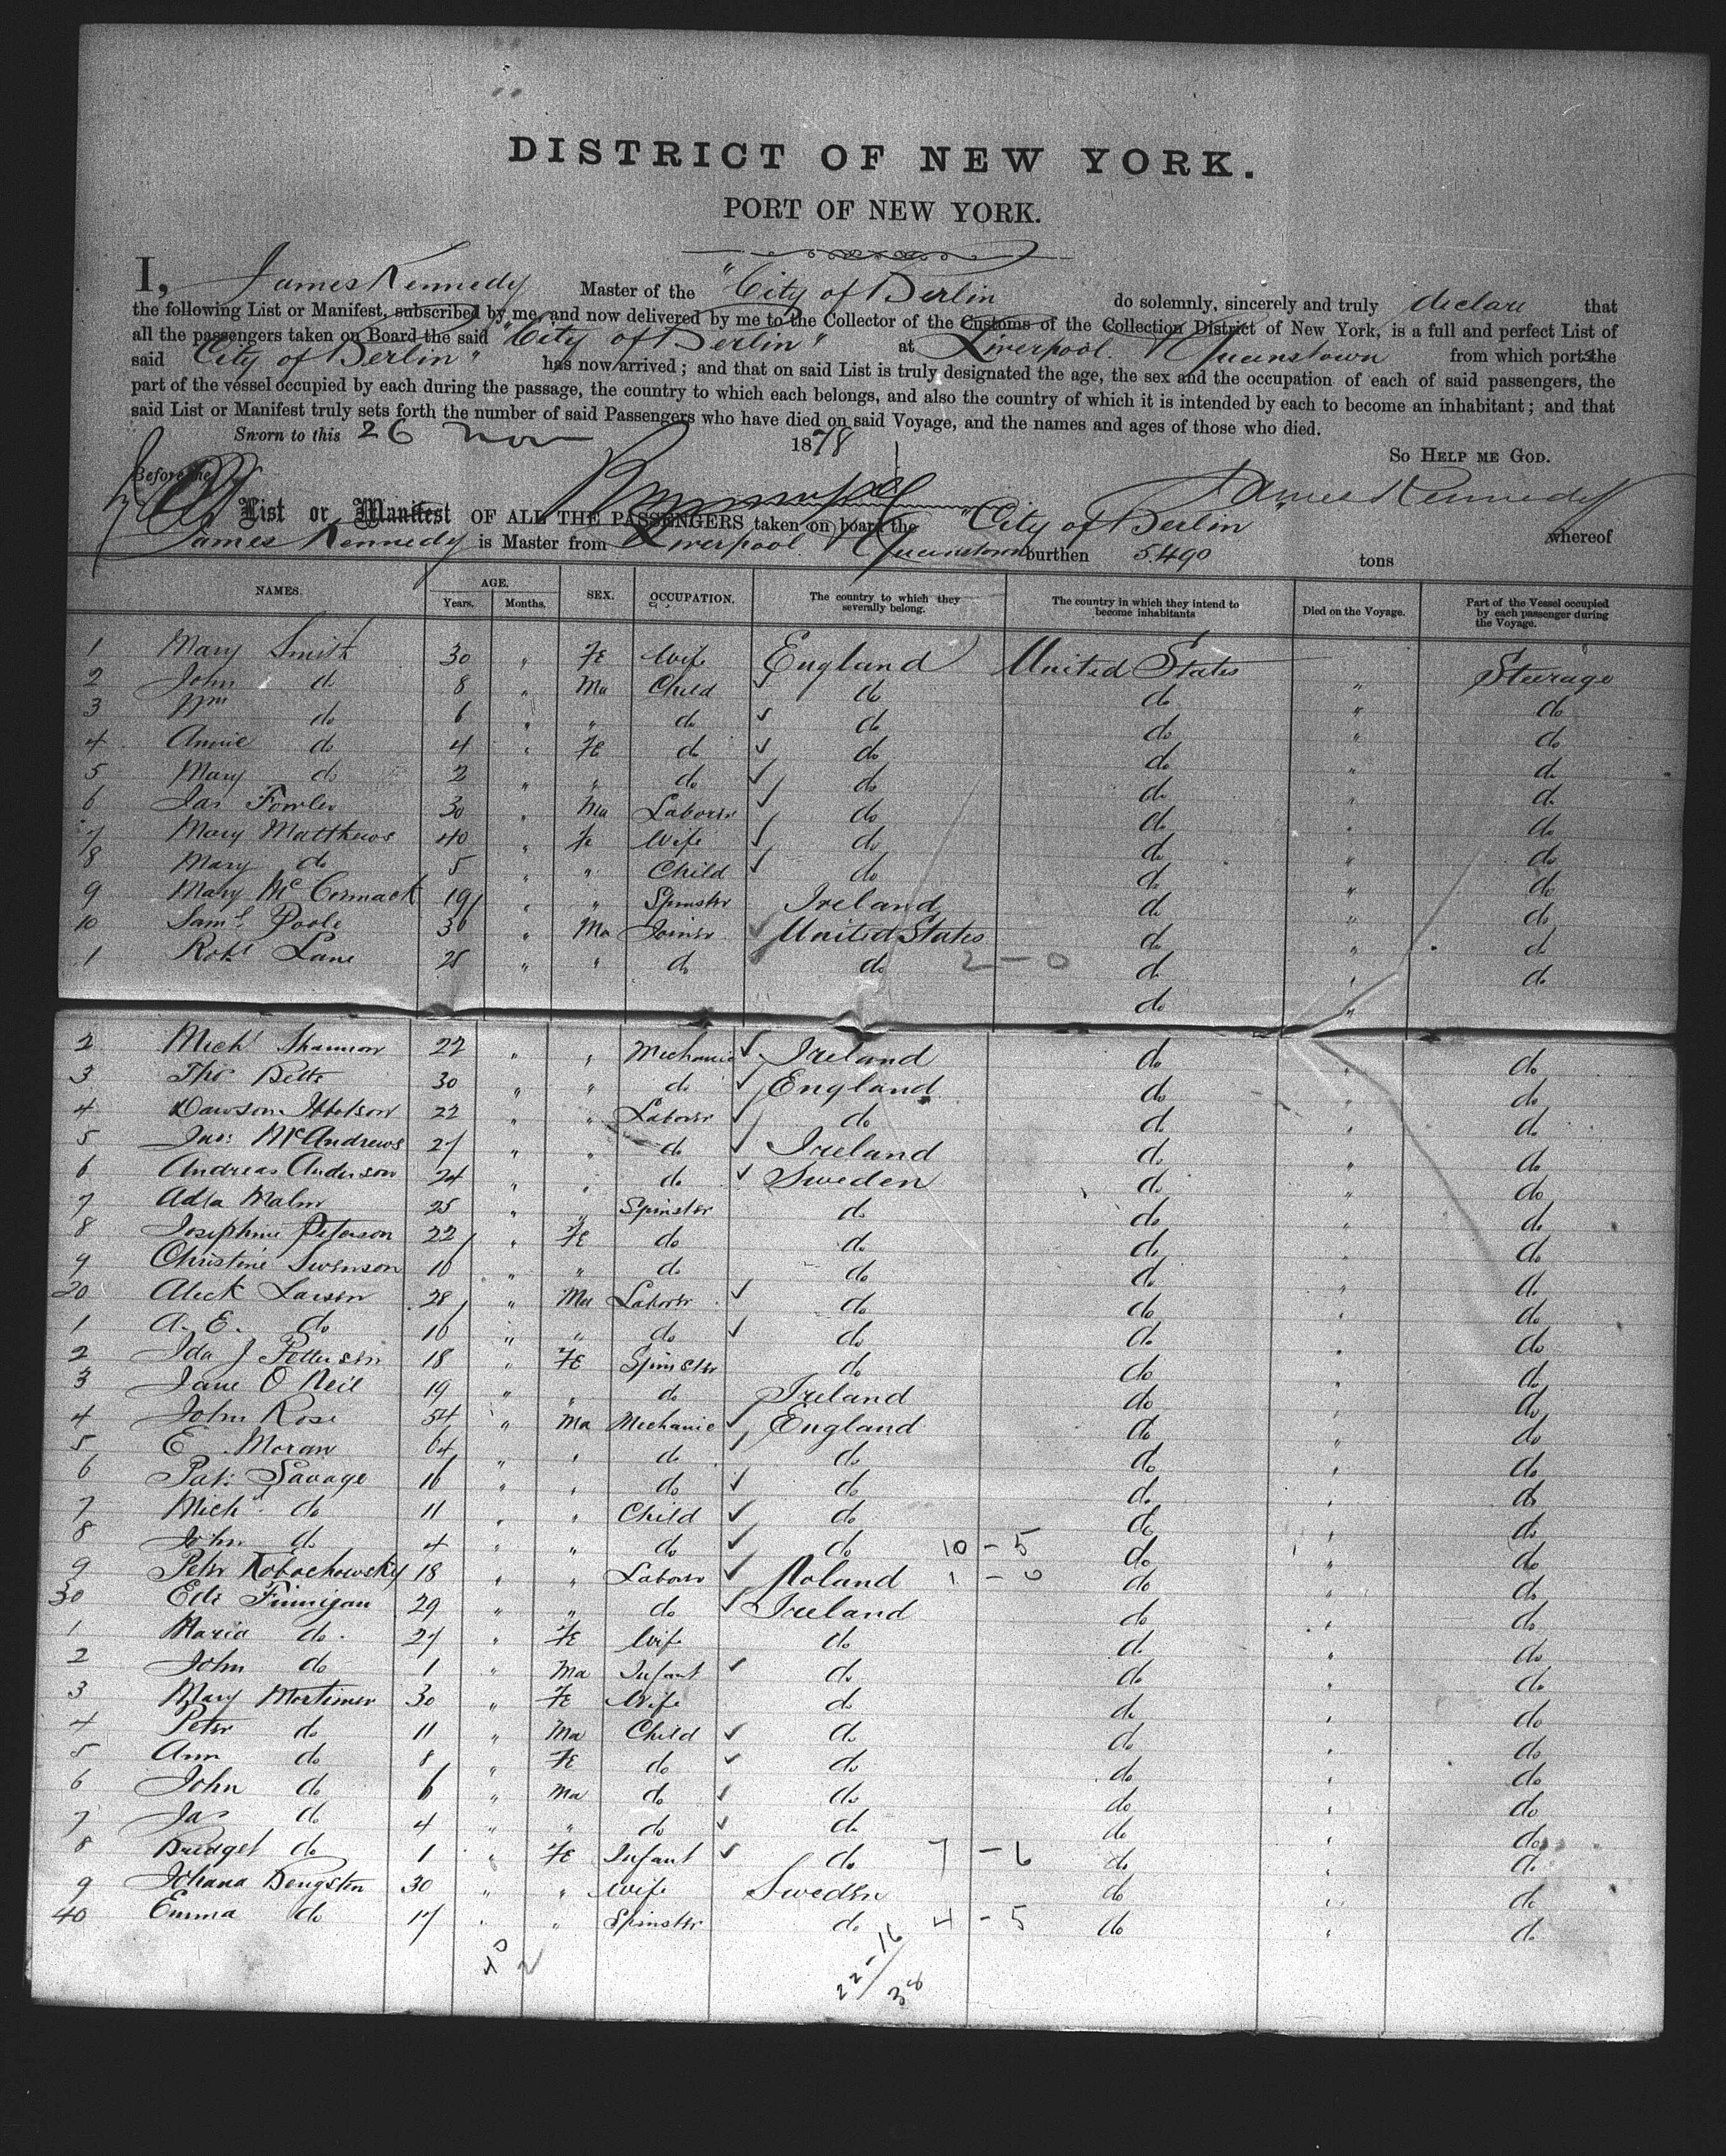 DISTRICT OF NEW YORK.
PORT OF NEW YORK.
I, James Kennedy Master of the "City of Berlin do solemnly, sincerely and truly declare that
the following List or Manifest, subscribed by me, and now delivered by me to the Collector of the Customs of the Collection District of New York, is a full and perfect List of
all the passengers taken on Board the said "City of Berlin" at Liverpool. Queenstown from which ports the
said City of Berlin" has now arrived; and that on said List is truly designated the age, the sex and the occupation of each of said passengers, the
part of the vessel occupied by each during the passage, the country to which each belongs, and also the country of which it is intended by each to become an inhabitant; and that
said List or Manifest truly sets forth the number of said Passengers who have died on said Voyage, and the names and ages of those who died.
Sworn to this 26 Nov 1878
So HELP ME GOD.
Before me
James Kennedy
List or Manifest OF ALL THE PASSENGERS taken on board the "City of Berlin" whereof
James Kennedy is Master from Liverpool Queenstown burthen 5.490 tons
NAMES. AGE. Years. Months. SEX. OCCUPATION. The country to which they severally belong. The country in which they intend to become inhabitants Died on the Voyage. Part of the Vessel occupied by each passenger during the Voyage.
1 Mary Smith 30 " Fe Wife England United States " Steerage
2 John do 8 " Ma Child do do " do
3 Wm do 6 " " do do do " do
4 Annie do 4 " Fe do do do " do
5 Mary do 2 " " do do do " do
6 Jas Fowler 30 " Ma Laborer do do " do
7 Mary Matthews 40 " Fe Wife do do " do
8 Mary do 5 " " Child do do " do
9 Mary McCormack 19 " " Spinster Ireland do " do
10 Saml Poole 36 " Ma Joiner United States do " do
1 Robt Lane 25 " " do do 2-0 do " do
do "
2 Michl Shannon 22 " " Mechanic Ireland do " do
3 Thos Betts 30 " " do England do " do
4 Dawson 22 " " Laborer do do " do
5 Jno: McAndrews 27 " " do Ireland do " do
6 Andreas Anderson 24 " " do Sweden do " do
7 Malm 25 " " Spinster do do " do
8 Josephine Peterson 22 " Fe do do do " do
9 Christine Swenson 16 " " do do do " do
20 Aleck Larsen 28 " Ma Laborer do do " do
1 A. E. do 16 " " do do do " do
2 Ida J Petterson 18 " Fe Spinster do do " do
3 Jane O Neil 19 " " do Ireland do " do
4 John Rose 54 " Ma Mechanic England do " do
5 E. Moran 64 " " do do do " do
6 Pat: Savage 16 " " do do do " do
7 Michl do 11 " " Child do do " do
8 John do 4 " " do do 10-5 do " do
9 Peter Kobochowsky 18 " " Laborer Poland 1-0 do " do
30 Finnigan 29 " " do Ireland do " do
1 Maria do. 27 " Fe Wife do do " do
2 John do 1 " Ma Infant do do " do
3 Mary Mortimer 30 " Fe Wife do do " do
4 Peter do 11 " Ma Child do do " do
5 Ann do 8 " Fe do do do " do
6 John do 6 " Ma do do do " do
7 Jas do 4 " " do do do " do
8 Bridget do 1 " Fe Infant do 7-6 do " do
9 Johana Bengsten 30 " " Wife Sweden do " do
40 Emma do 17 " " Spinster do 4-5 do " do
40
2
22-16
38